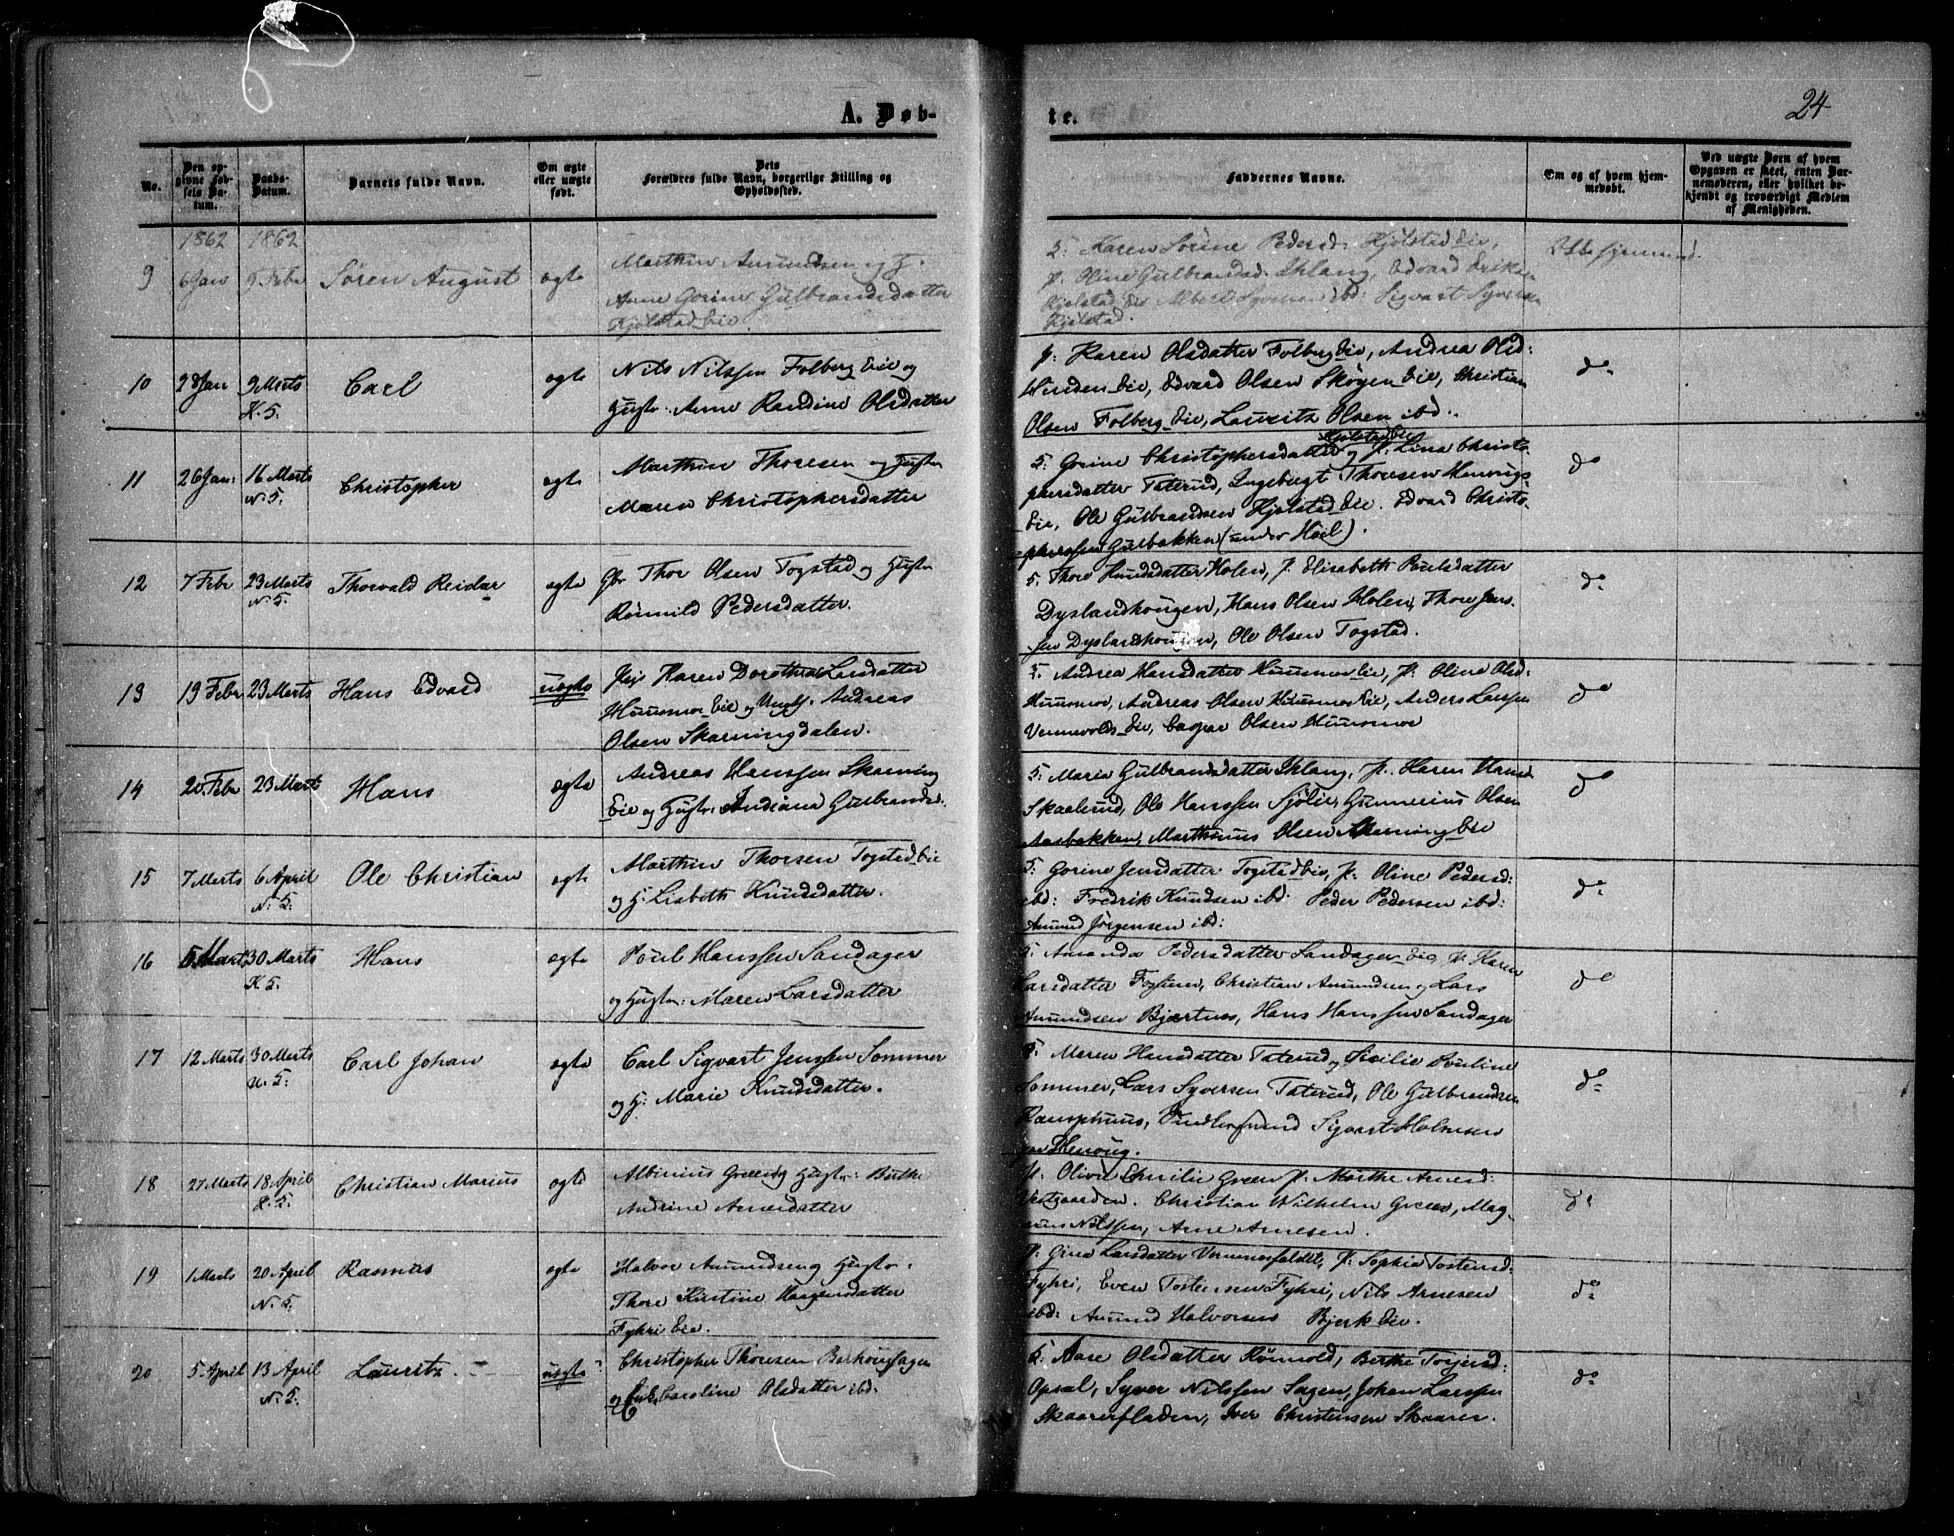 24
A. Døb-
te.
No.
Den opgivne Fødsels Datum.
Daabs-Datum.
Barnets fulde Navn.
Om ægte eller uægte født.
Dets Forældres fulde Navn, borgerlige Stilling og Opholdssted.
Faddernes Navne.
Om og af hvem hjemmedøbt.
Ved uægte Børn af hvem Opgaven er skeet, enten Barnemoderen, eller hvilket bekjendt og troværdigt Medlem af Menigheden.
1862 1862
9 6 Jan 9 Febr Søren August ægte
Marthin Amundsen og H.
Anne Gorine Gulbrandsdatter
Kjølstad Eie.
Karen Sørine Pedersd. Kjølstad Eie,
P. Oline Gulbrandsd. Ihlang, Edvard Eriksen
Kjølstad Eie Albert Syversen ibd: Sigvart Syversen
Kjølstad.
Ikke hjemmed.
10 28 Jan 9 Marts Carl ægte
K. S.
Nils Nilssen Folberg Eie og
Hustr. Anne Randine Olsdatter
P: Karen Olsdatter Folberg Eie, Andrea Olsd:
Eie, Edvard Olsen Skøyen Eie, Christian
Olsen Folberg Eie, Lauritz Olsen ibd.
do
11 26 Jan: 16 Marts Christopher ægte
N. S.
Marthin Thoresen og Hustr
Maren Christophersdatter
Kjølstad Eie
G: Gorine Christophersdatter og P. Lina Christo-
phersdatter Taterud, Ingebregt Thoresen
Eie, Ole Gulbrandsen Kjølstad Eie. Edvard Christo-
phersen Gulbakken (under Hoel).
do
12 7 Febr 23 Marts Thorvald Reidar ægte
N. S.
Gbr Thor Olsen Togstad og Hustr
Rønnild Pedersdatter.
G. Thore Knudsdatter Holen, P. Elisabeth Poulsdatter
Dyslandhougen, Hans Olsen Holen, Thore Jens-
sen Dyslandhougen, Ole Olsen Togstad.
do
13 19 Febr 23 Marts Hans Edvard uægte
Pige Karen Dorothea Larsdatter
Huusmoe Eie og Ungk. Andreas
Olsen Skarningdalen.
G. Andrea Hansdatter Huusmoe Eie, P. Oline Olsd.
Huusmoe, Andreas Olsen Huusmoe Eie, Anders Larssen
Vennevolds Eie, Caspar Olsen Huusmoe
do
14 20 Febr 23 Marts Hans ægte
Andreas Hanssen Skarning
Eie og Hustr. Andiane Gulbrandsd.
G: Maria Gulbrandsdatter Ihlang, P. Karen Hansd.
Skaalerud, Ole Hanssen Sjølie, Gunnerius Olsen
Aasbakken, Marthinus Olsen Skarning Eie
do
15 7 Marts 6 April Ole Christian ægte
N. S.
Marthin Thorsen Togstad Eie
og H. Lisbeth Knudsdatter.
G: Gorine Jensdatter Togstad Eie, P. Oline Pedersd:
ibd: Fredrik Knudsen ibd: Peder Pedersen ibd:
Amund Jørgensen ibd:
do
16 5 Marts 30 Marts Hans ægte
K. S.
Poul Hanssen Sandager
og Hustr: Maren Larsdatter
G. Amanda Pedersdatter Sandager Eie, P. Karen
Larsdatter Christian Amundsen og Lars
Amundsen Bjertnes, Hans Hanssen Sandager
do
17 12 Marts 30 Marts Carl Johan ægte
K. S.
Carl Sigvart Jenssen Sommer
og H: Marie Knudsdatter.
G: Maren Hansdatter Taterud og Sicilie Pouline
Sommer, Lars Syversen Taterud, Ole Gulbrandsen
Sigvart Halvorsen
do
18 27 Marts 18 April Christian Marius ægte
K. S.
Albinius Green og Hustr: Berthe
Andrine Arnesdatter
P. Oliva Emilie Green P. Marthe Arnesd:
Vestgaarden. Christian Wilhelm Green, Mag-
nus Nilssen, Arne Arnesen.
do
19 1 Marts 20 April Rasmus ægte
N. S.
Halvor Amundsen og Hustr.
Thore Kirstine Haagensdatter
Fyhri Eie.
P. Gina Larsdatter Vennersfaldet, P. Sophia Tostensd:
Fyhri, Even Tostensen Fyhri, Nils Arnesen
ibd: Amund Halvorsen Bjerk Eie.
do
20 5 April 13 April Lauritz. uægte
N. S.
Christopher Thoresen Berhoughagen
og Caroline Olsdatter ibd.
G. Aase Olsdatter Rønnold, Berthe Torjersd:
Opsal, Syver Nilssen Sagen, Johan Larssen
Skaarerfladen, Iver Christensen Skaarer.
do